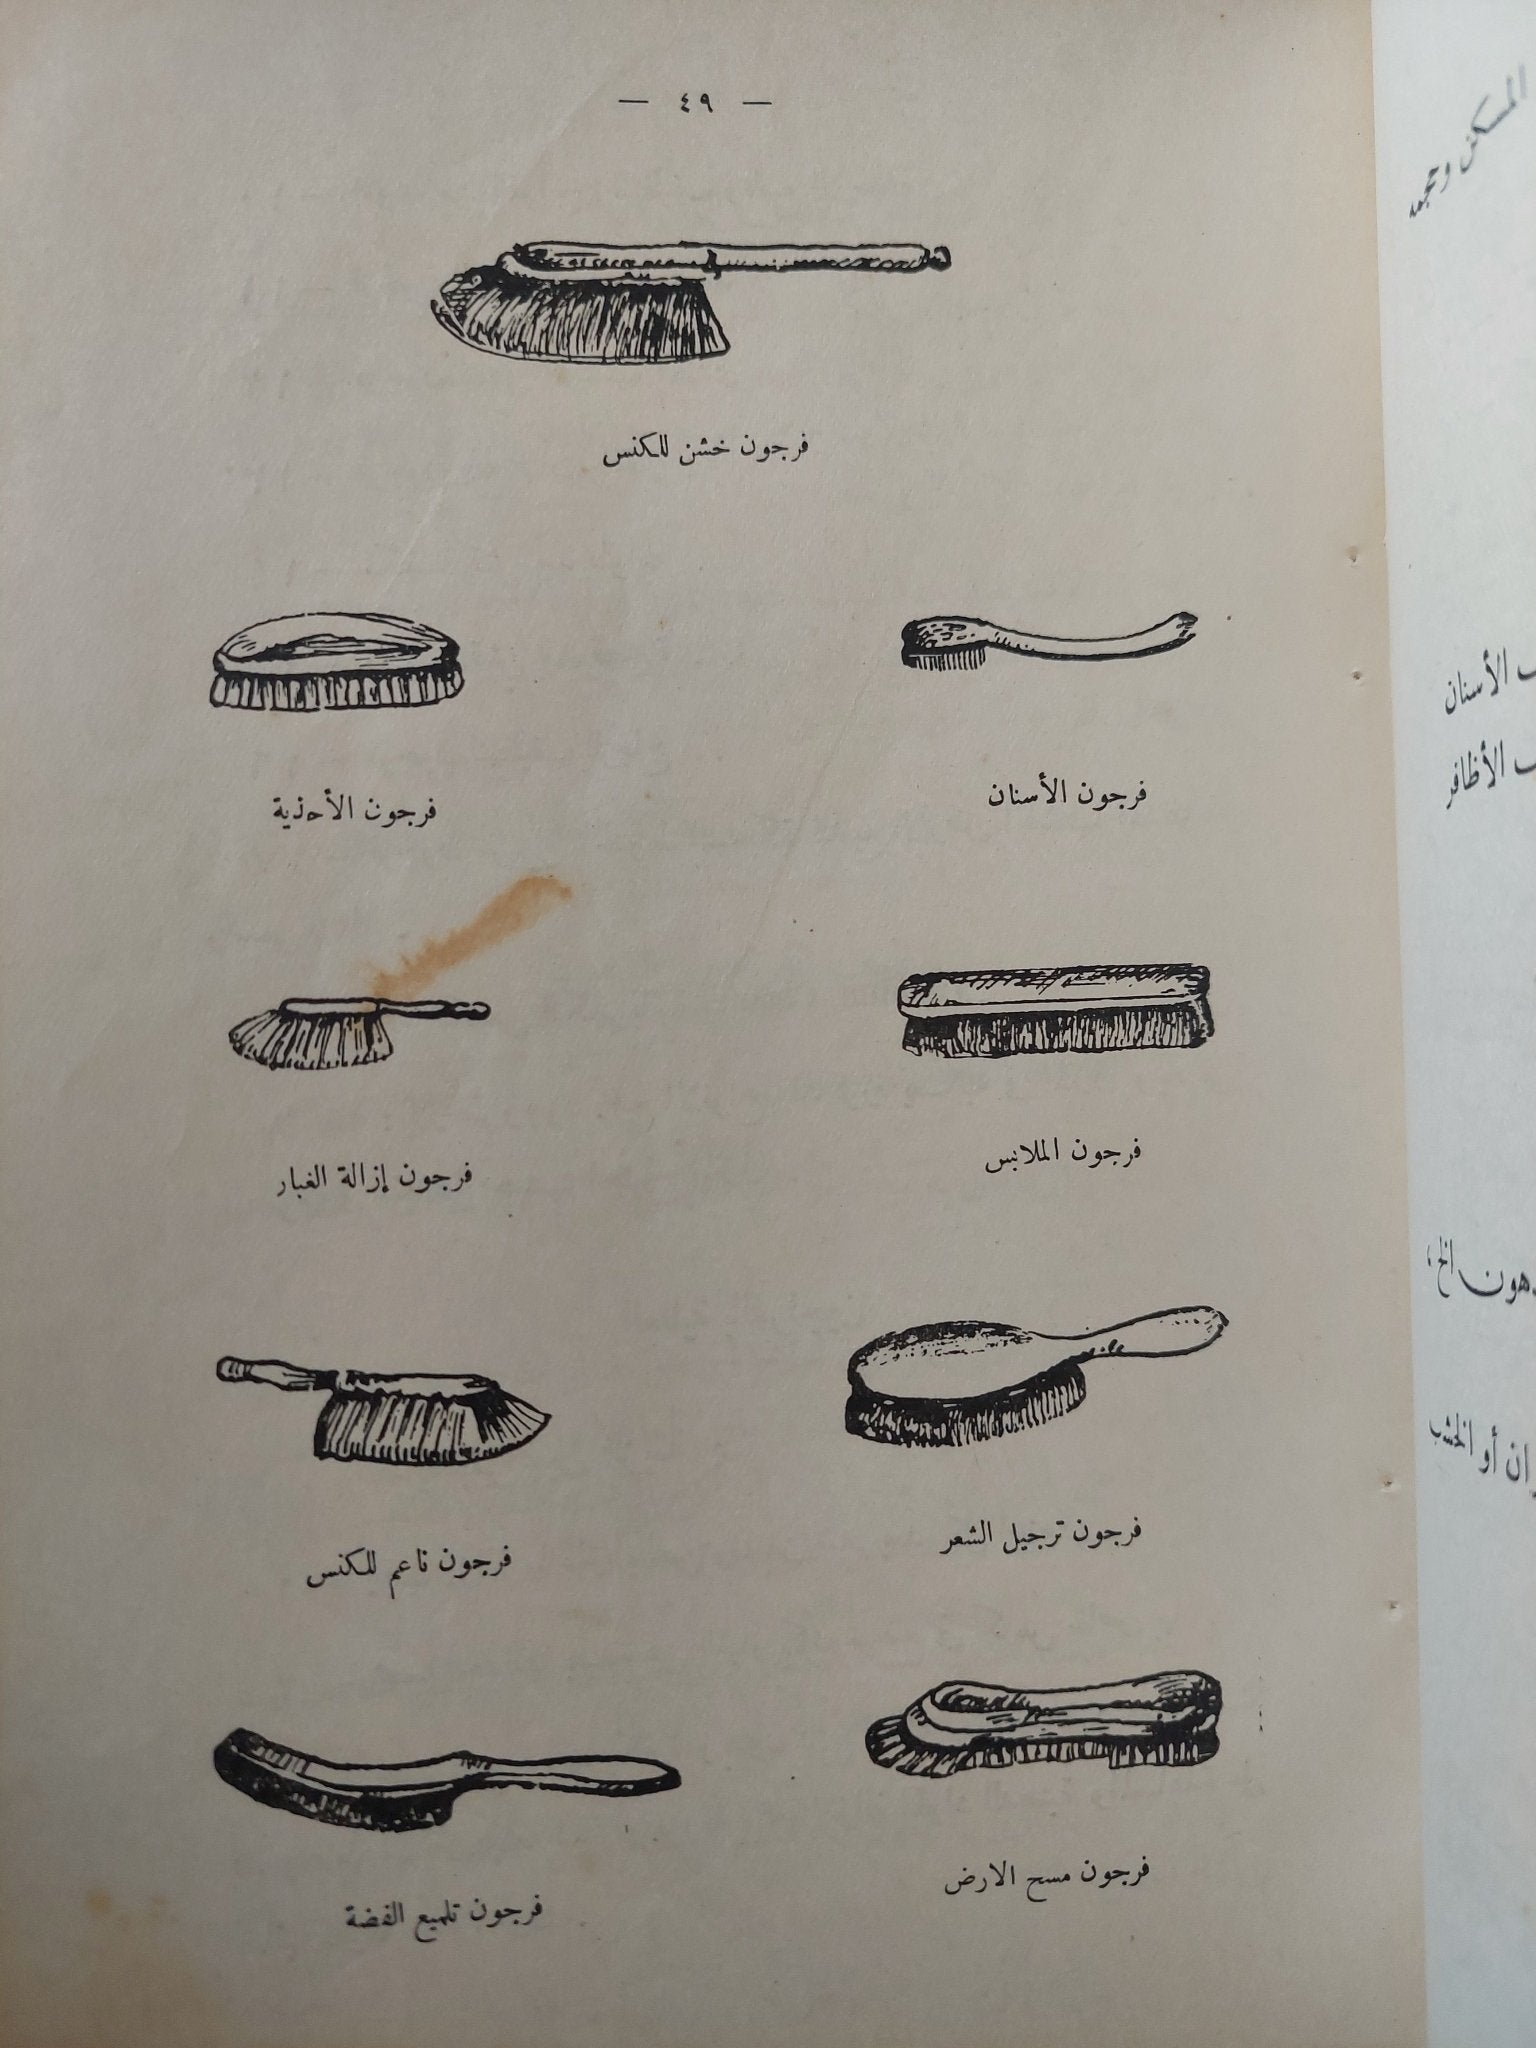 — ٤٩ —
فرجون خشن للكنس
فرجون الأسنان
فرجون الأحذية
فرجون الملابس
فرجون إزالة الغبار
فرجون ترجيل الشعر
فرجون ناعم للكنس
فرجون مسح الارض
فرجون تلميع الفضة
المسكن وحجمه
الأسنان
الأظافر
الخ،
أو الخشب